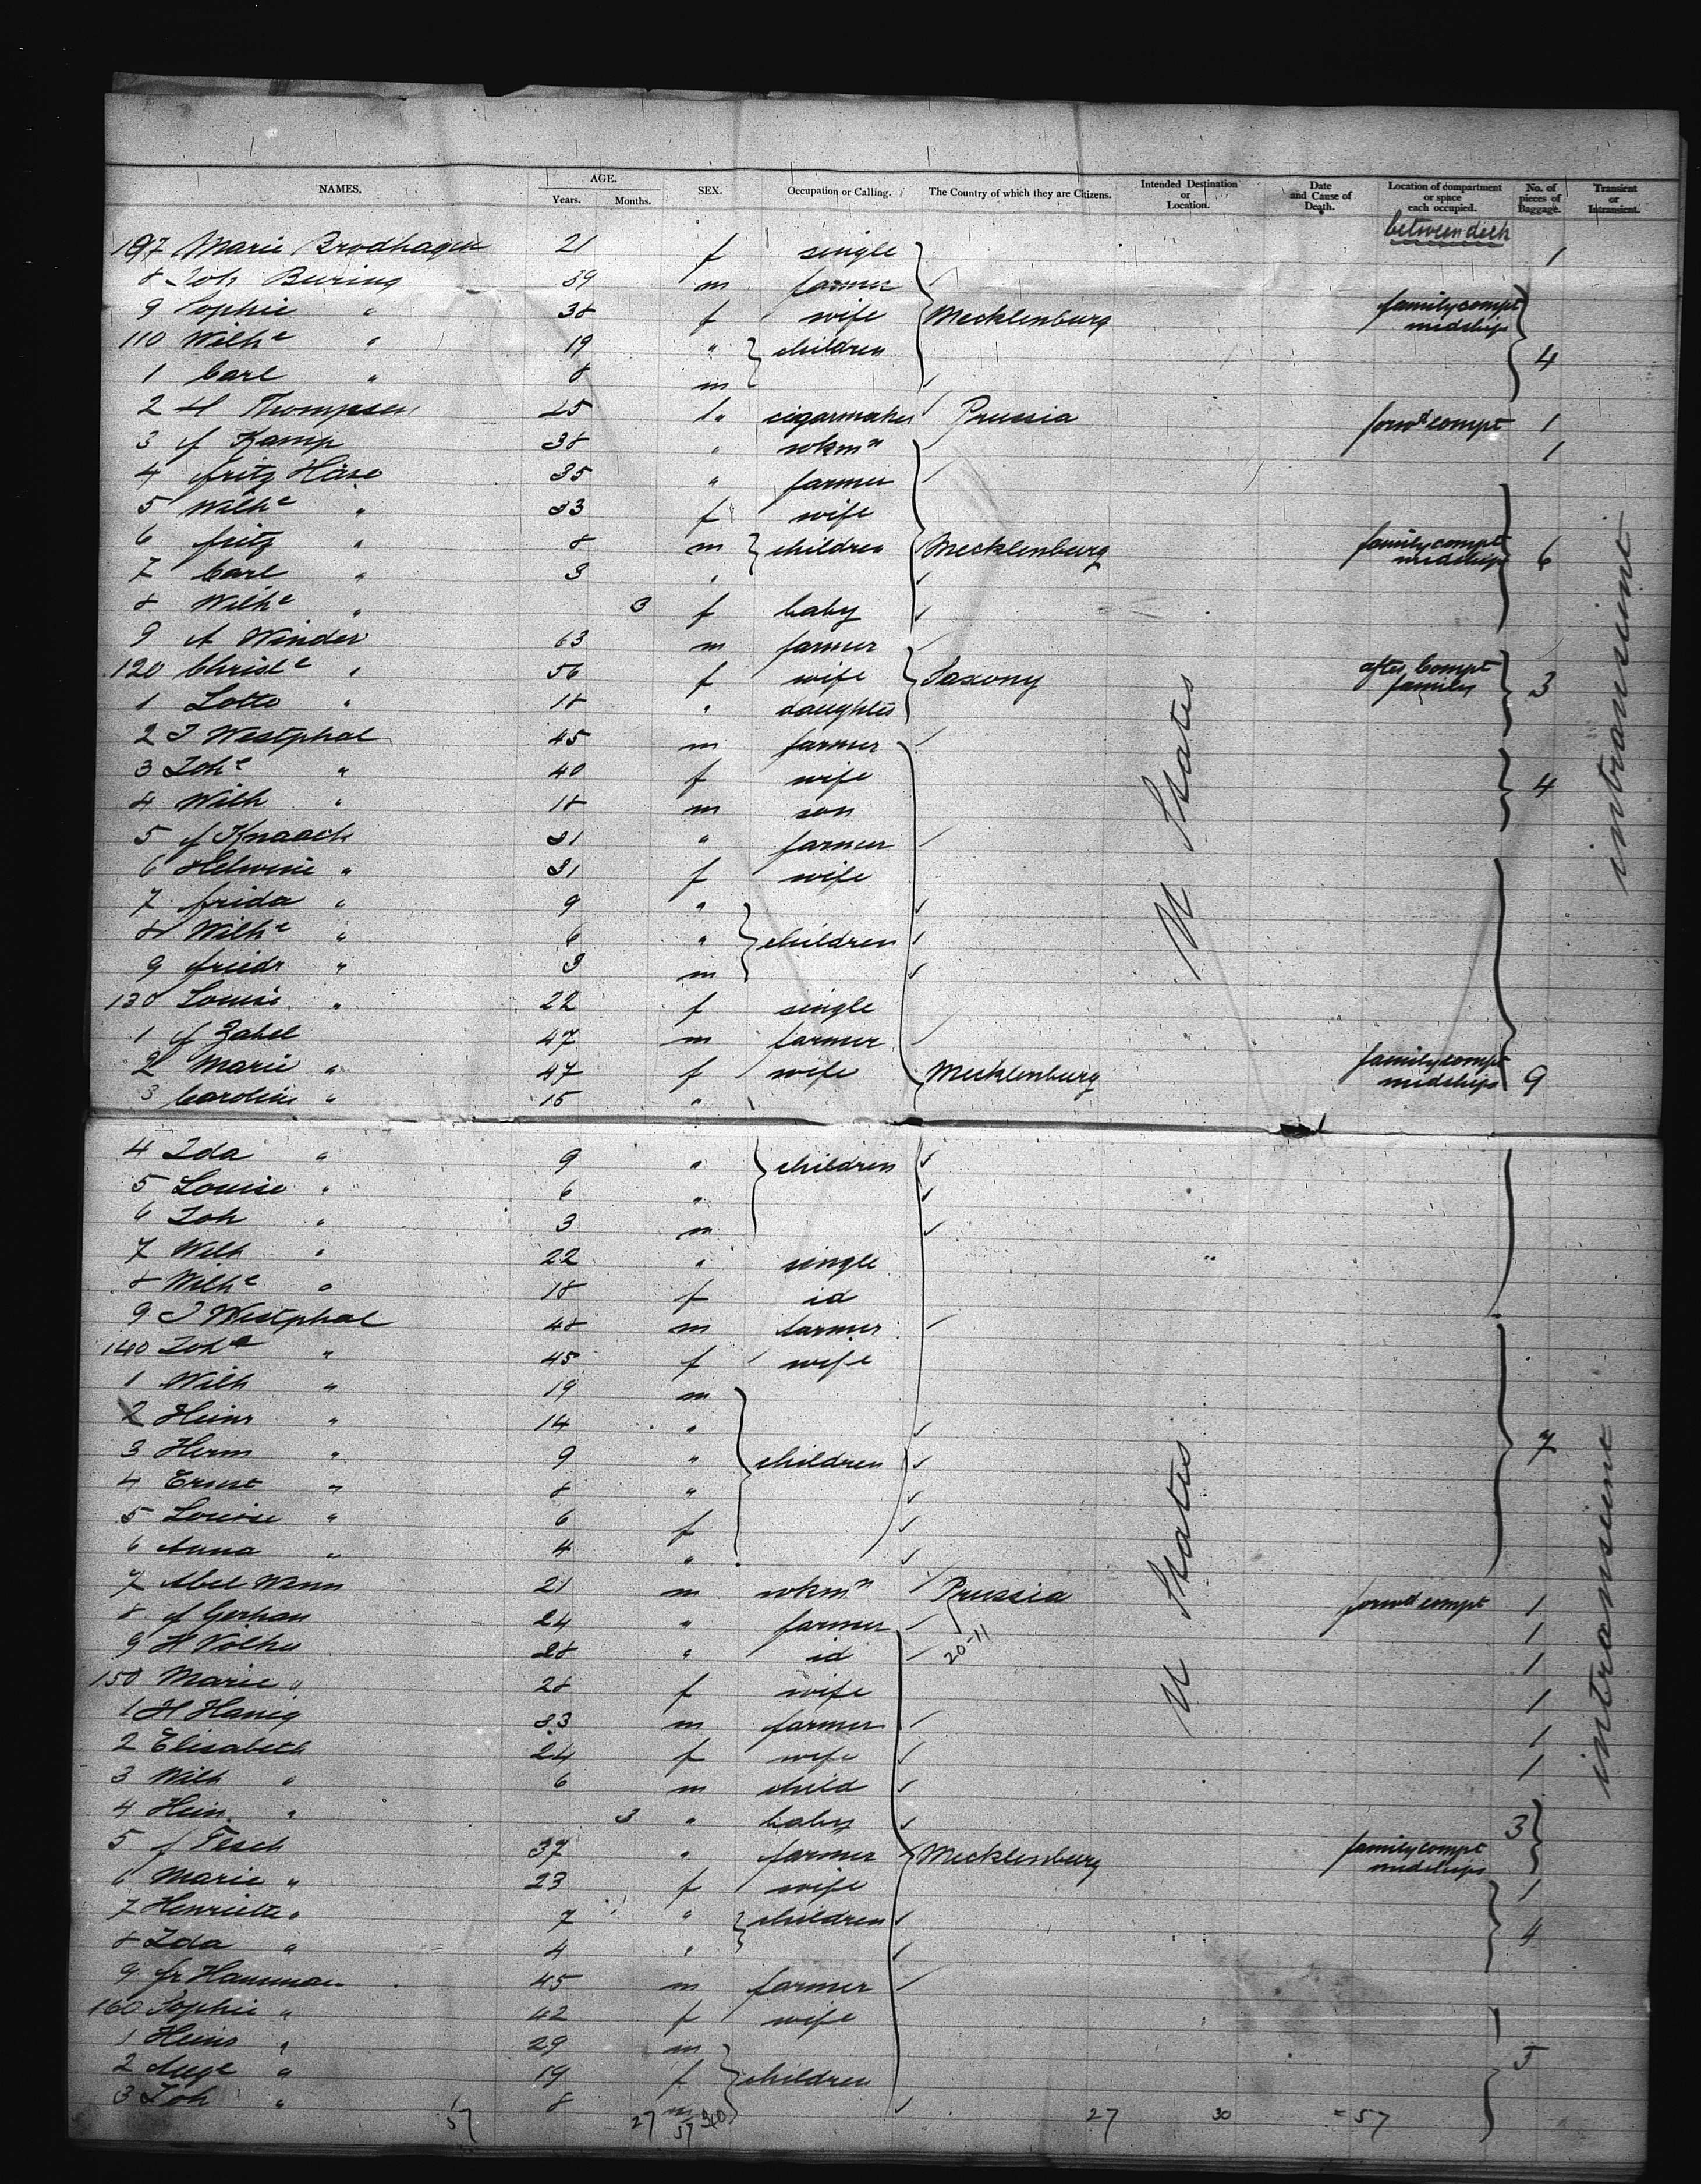 NAMES. AGE. Years. Months. SEX. Occupation or Calling. The Country of which they are Citizens. Intended Destination or Location. Date and Cause of Death. Location of compartment or space each occupied. No. of pieces of Baggage. Transient or Intransient.
between deck
107 Marie Brodhagen 21 f single 1
8 Joh Buring 39 m farmer
9 Sophie " 38 f wife Mecklenburg family compt midships
110 Wilhe " 19 " children 4
1 Carl " 8 m
2 H Thompsen 25 " cigarmaker Prussia forwd compt 1
3 f Kamp 38 " wkmn 1
4 fritz Häse 35 " farmer
5 Wilhe " 33 f wife
6 fritz " 8 m children Mecklenburg family compt midships 6
7 Carl " 3 "
8 Wilhe " 3 f baby
9 A Winder 63 m farmer
120 Christe " 56 f wife Saxony after Compt family 3
1 Lotte " 18 " daughter
2 J Westphal 45 m farmer
3 Johe " 40 f wife 4
4 Wilh " 18 m son
5 f Knaack 31 " farmer
6 Helwine " 31 f wife
7 frida " 9 "
8 Wilhe " 6 " children
9 friedr " 3 m
130 Louise " 22 f single
1 f Zabel 47 m farmer
2 Marie " 47 f wife Mecklenburg family compt midships 9
3 Caroline " 15 "
4 Ida " 9 " children
5 Louise " 6 "
6 Joh " 3 m
7 Wilh " 22 " single
8 Wilhe " 18 f id
9 J Westphal 48 m farmer
140 Johe " 45 f wife
1 Wilh " 19 m
2 Heinr " 14 "
3 Herm " 9 " children 7
4 Ernst " 8 "
5 Louise " 6 f
6 Anna " 4 "
7 Abel Wenn 21 m wkmn Prussia forwd compt 1
8 f Gerhan 24 " farmer 1
9 H Völker 28 " id 20-11 1
150 Marie " 28 f wife 1
1 H Hanig 33 m farmer 1
2 Elisabeth 24 f wife 1
3 Wilh " 6 m child
4 Hein " 3 " baby 3
5 f Tesch 37 " farmer Mecklenburg family compt midships
6 Marie " 23 f wife 1
7 Henriette " 7 " children
8 Ida " 4 " 4
9 fr Hamman 45 m farmer
160 Sophie " 42 f wife
1 Heinr " 29 m
2 Auge " 19 f children 5
3 Joh " 8 m
57 27 57 27 30 = 57
U States
intransient
U States
intransient